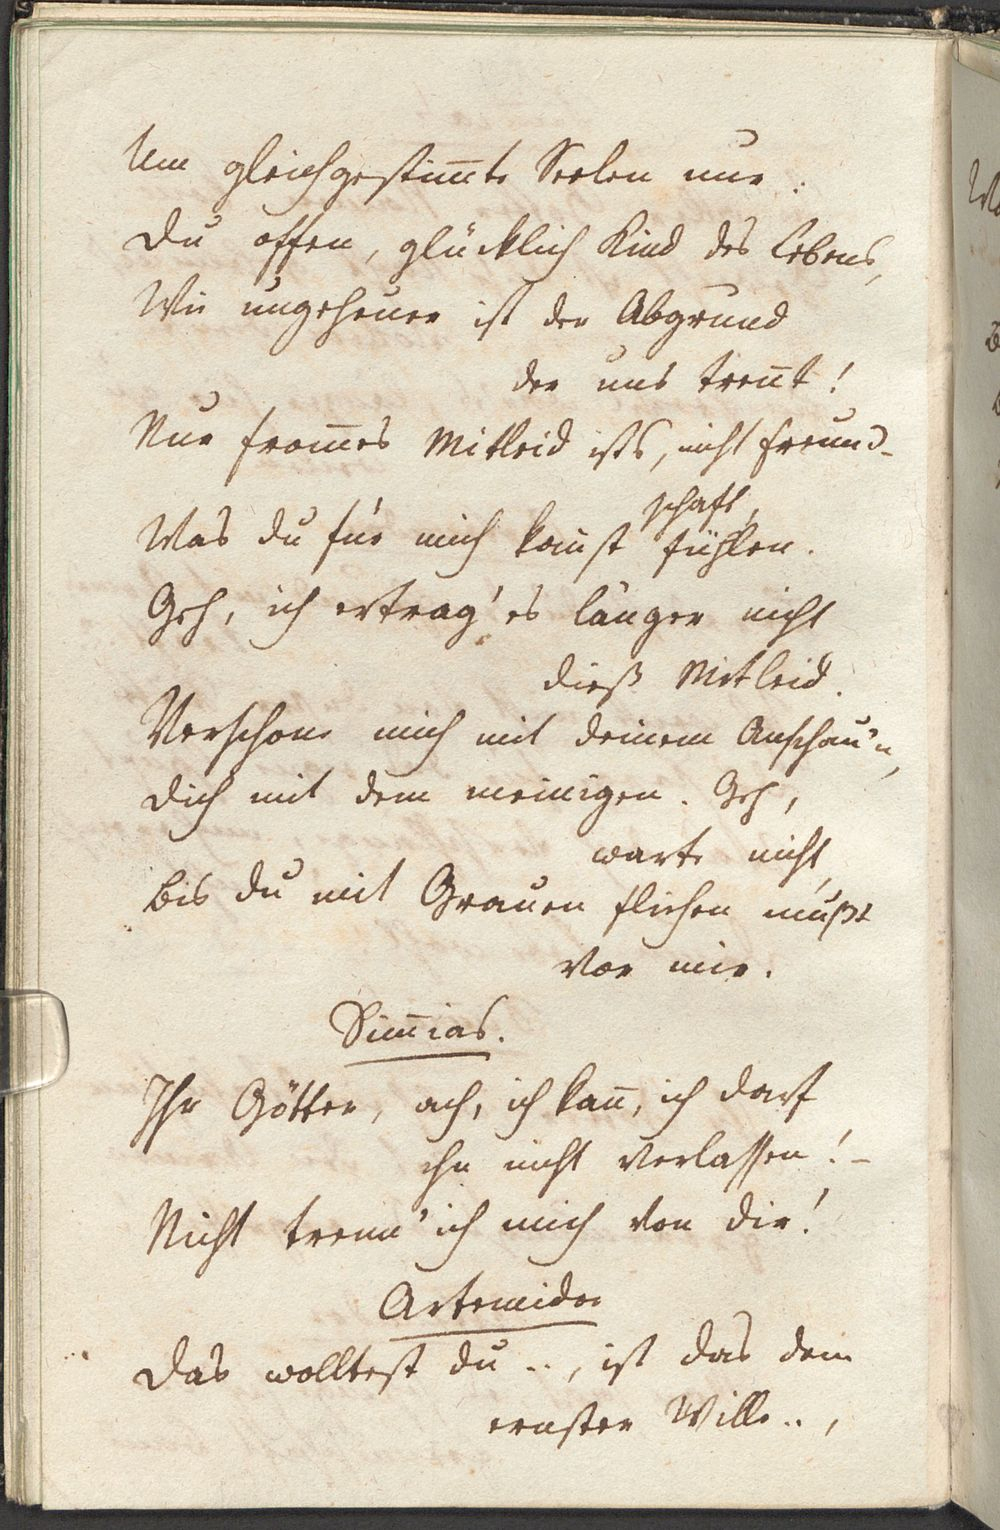 Um gleichgestim̅te Seelen nur:
Du offen, glücklich Kind des Lebens,
Wie ungeheuer ist der Abgrund
der uns tren̅t!
Nur from̅es Mitleid ists, nicht Freund-
schaft,
Was du für mich kan̅st fühlen.
Geh, ich ertrag' es länger nicht
dieß Mitleid.
Verschone mich mit deinem Anschau'n,
Dich mit dem meinigen. Geh,
warte nicht,
Bis du mit Grauen fliehen mußt
vor mir.
Sim̅ias.
Ihr Götter, ach, ich kan̅, ich darf
ihn nicht verlassen! –
Nicht trenn' ich mich von dir!
Artemidor
Das wolltest du .., ist das dein
ernster Wille ..,